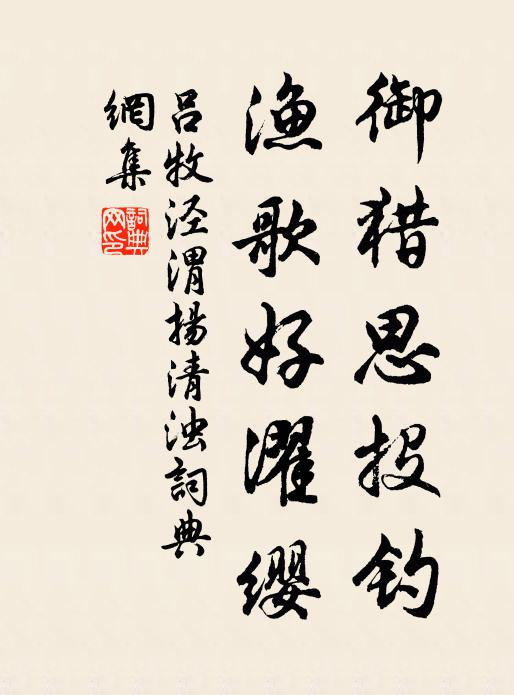 御猎思投钓
渔歌好濯缨
吕牧泾渭扬清浊詞典
網集
詞典网印